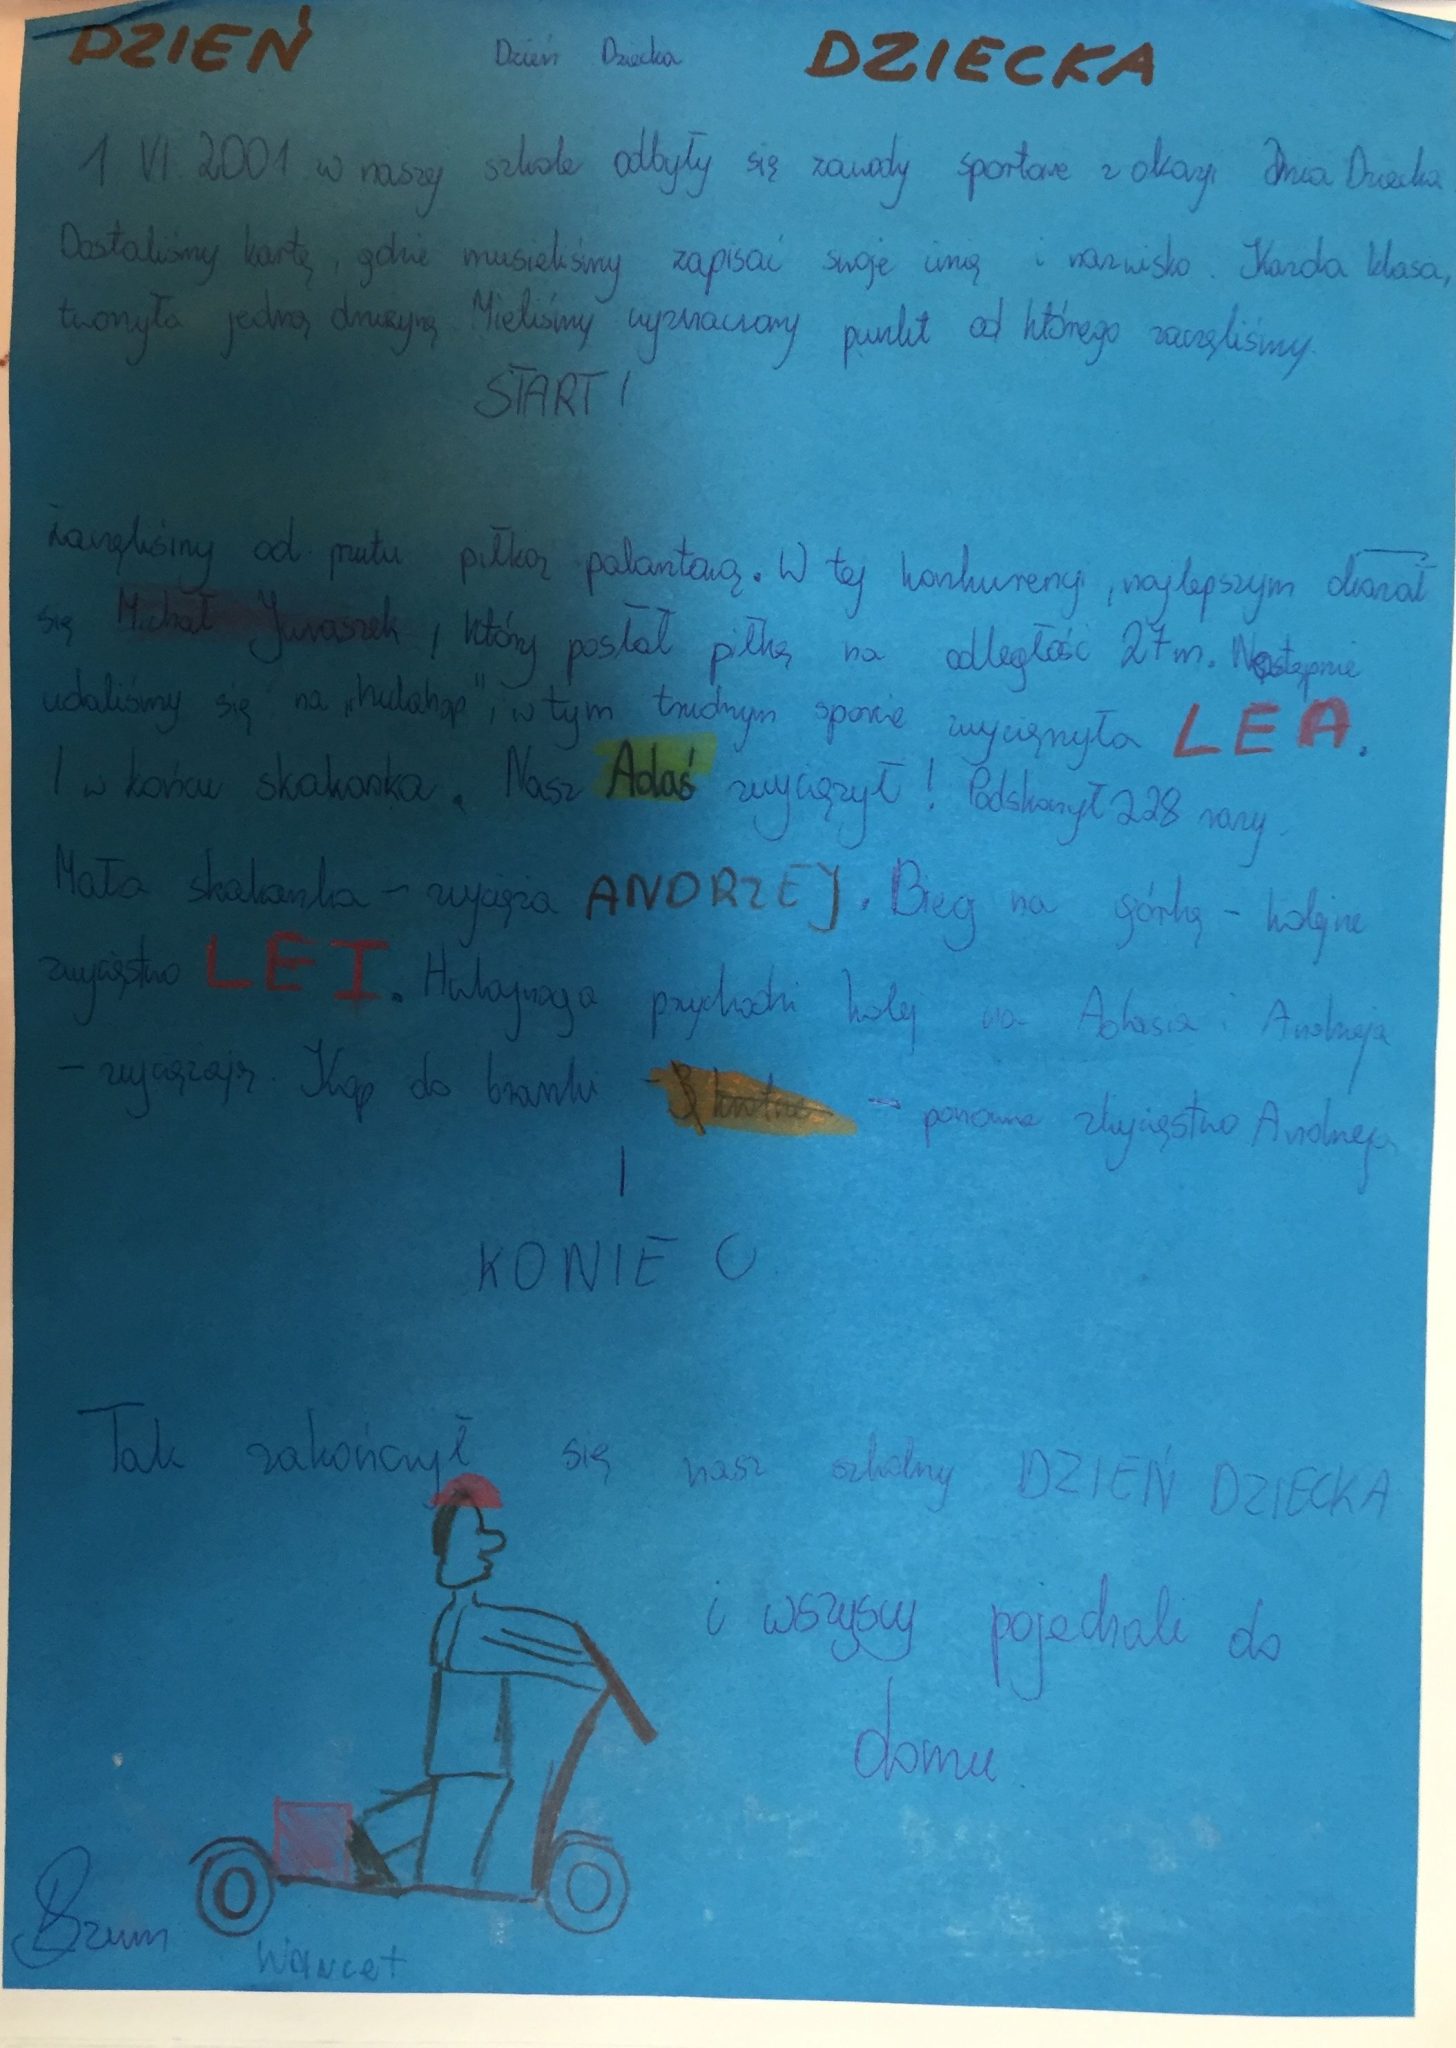 DZIEŃ Dzień Dziecka DZIECKA
1 VI 2001 w naszej szkole odbyły się zawody sportowe z okazji Dnia Dziecka
Dostaliśmy kartę, gdzie musieliśmy zapisać swoje imię i nazwisko. Każda klasa,
tworzyła jedną drużynę. Mieliśmy wyznaczony punkt od którego zaczęliśmy.
START!
Zaczęliśmy od rzutu piłką palantową. W tej konkurencji, najlepszym okazał
się Michał Juraszek, który posłał piłkę na odległość 27m. Następnie
udaliśmy się na "hulahop", w tym trudnym sporcie zwyciężyła LEA.
I w końcu skakanka. Nasz Adaś zwyciężył! Podskoczył 228 razy.
Mała skakanka - zwycięża ANDRZEJ. Bieg na górkę - kolejne
zwycięstwo LEI. Hulajnoga przychodzi kolej na Adasia i Andrzeja
- zwyciężają. Kop do bramki - - ponowne zwycięstwo Andrzeja
KONIEC
Tak zakończył się nasz szkolny DZIEŃ DZIECKA
i wszyscy pojechali do
domu.
Brum